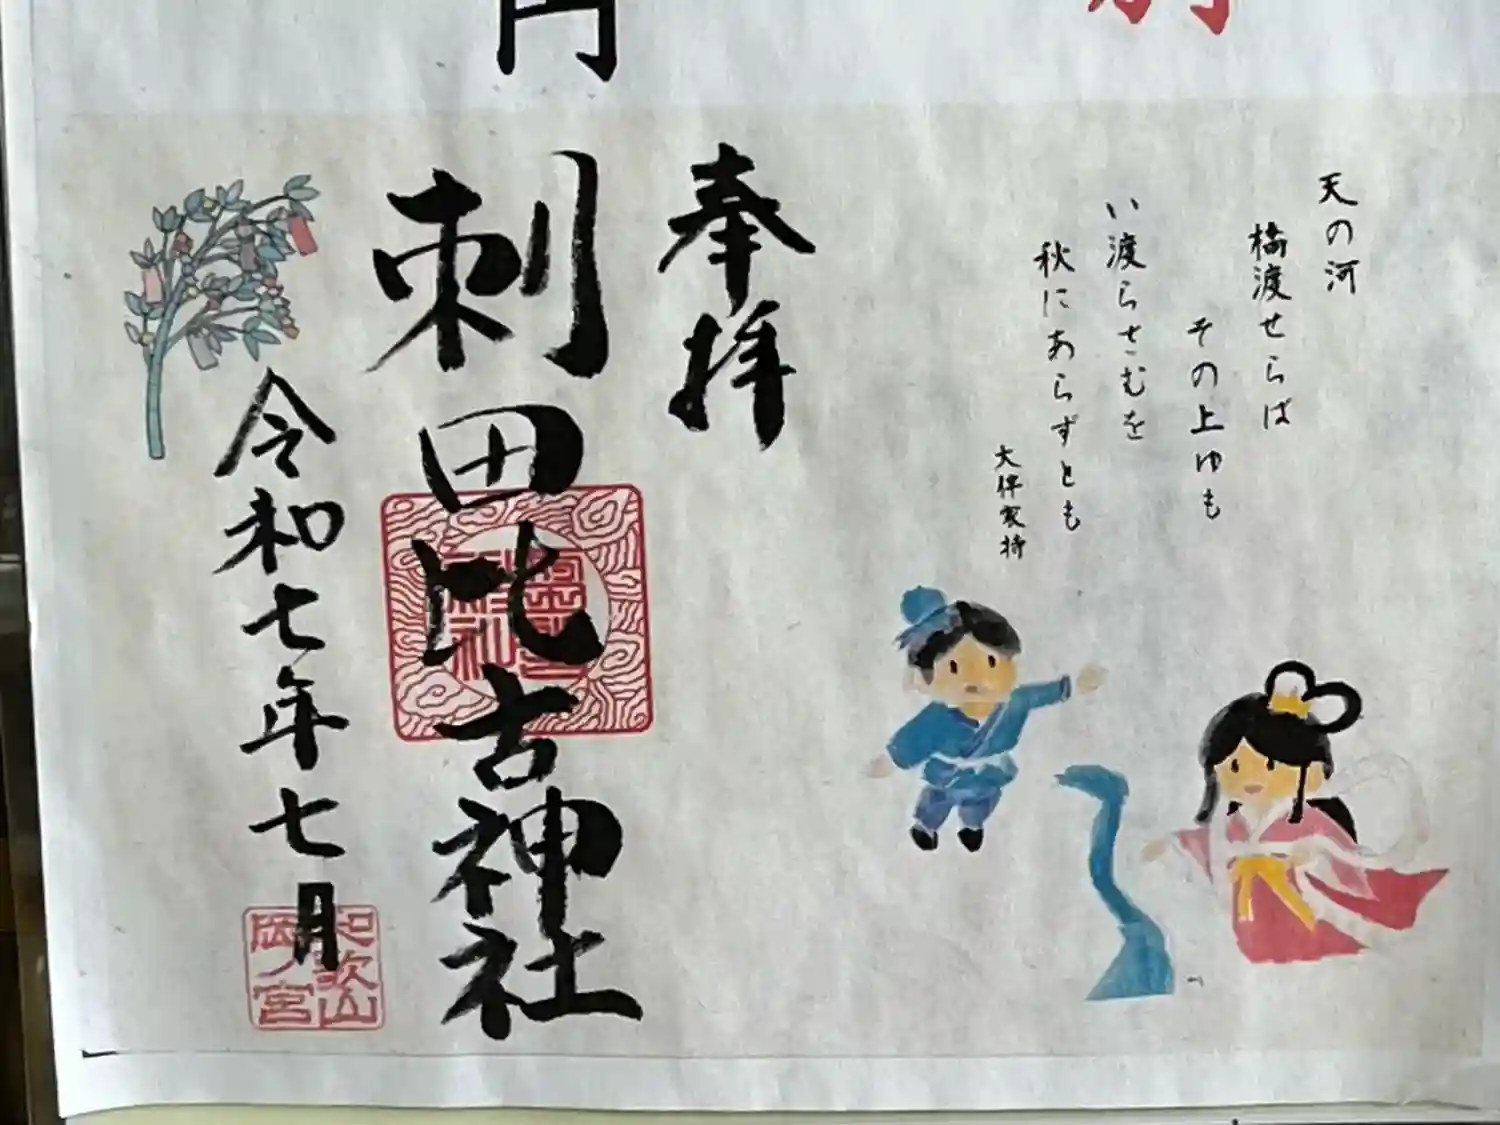 円
天の河
橋渡せらば
その上ゆも
い渡らさむを
秋にあらずとも
大伴家持
奉拝
刺田比古神社
令和七年七月
和歌山
岡ノ宮